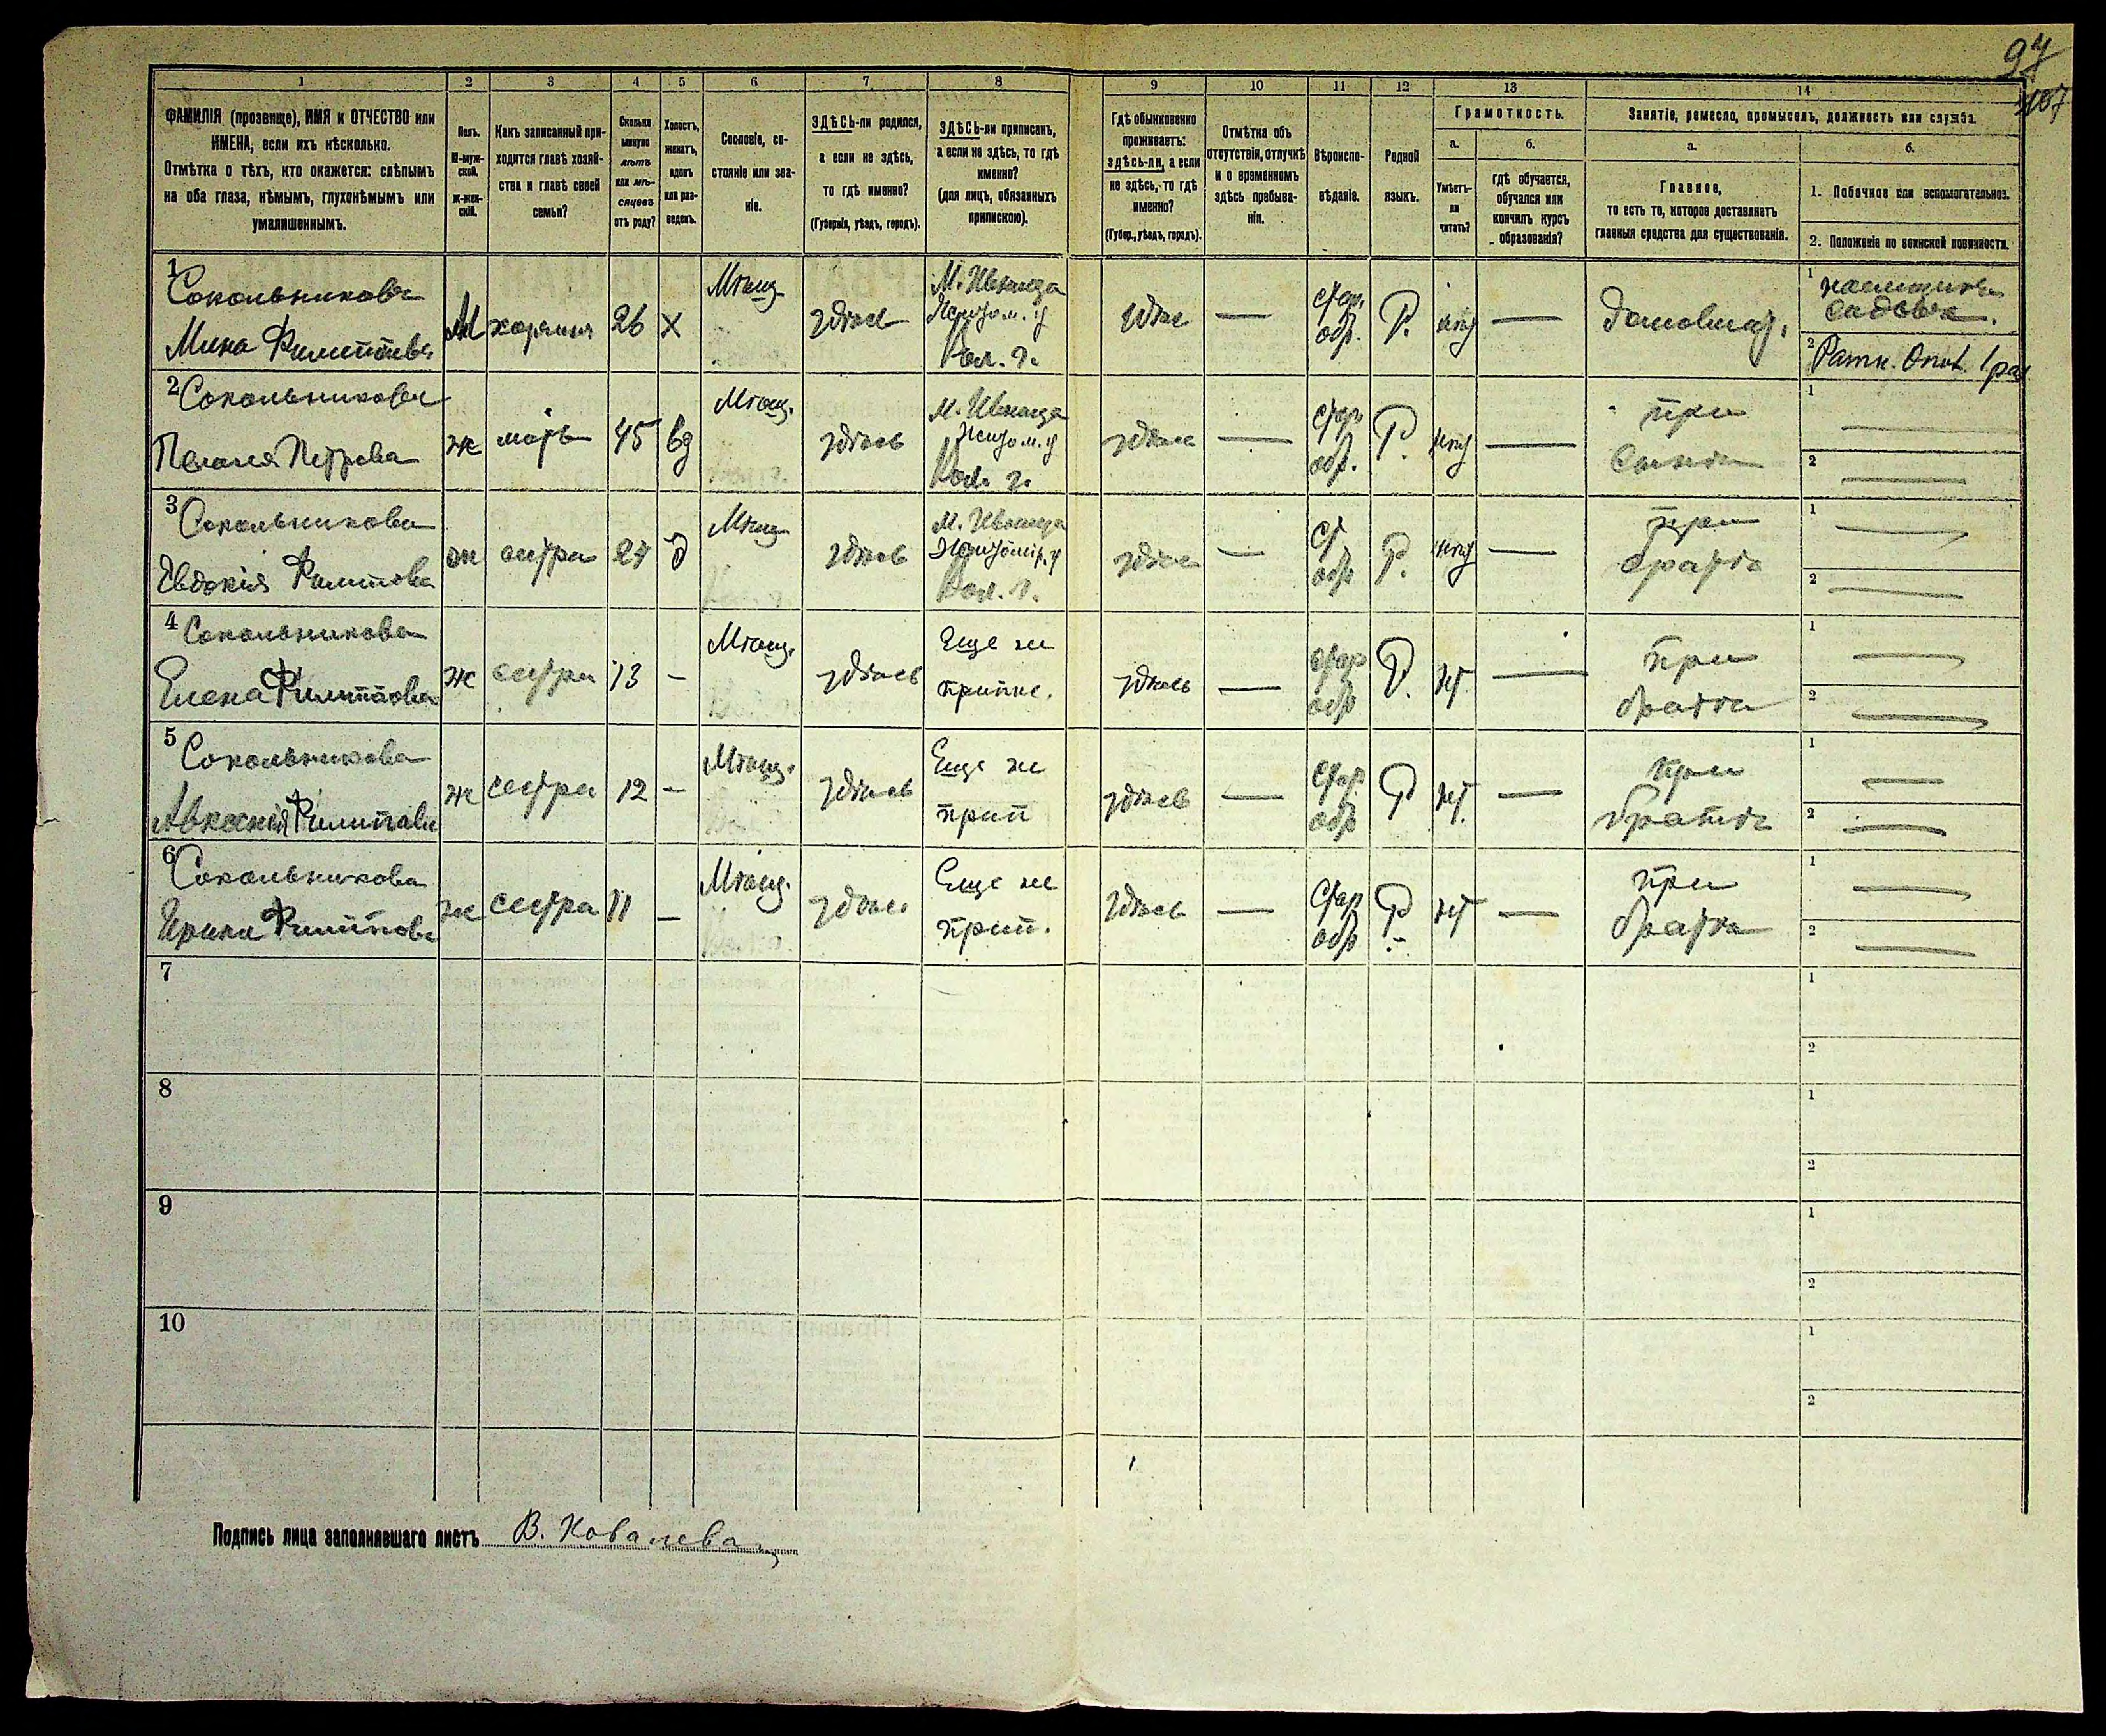 97
107
1
2
3
4
5
6
7
8
9
10
11
12
13
14
ФАМИЛІЯ (прозвище), ИМЯ и ОТЧЕСТВО или
ИМЕНА, если ихъ нѣсколько.
Отмѣтка о тѣхъ, кто окажется: слѣпымъ
на оба глаза, нѣмымъ, глухонѣмымъ или
умалишеннымъ.
Полъ.
М-муж-
ской.
ж-жен-
скій.
Какъ записанный при-
ходится главѣ хозяй-
ства и главѣ своей
семьи?
Сколько
минуло
лѣтъ
или мѣ-
сяцевъ
отъ роду?
Холостъ,
женатъ,
вдовъ
или раз-
веденъ.
Сословіе, со-
стояніе или зва-
ніе.
ЗДѢСЬ-ли родился,
а если не здѣсь,
то гдѣ именно?
(Губернія, уѣздъ, городъ).
ЗДѢСЬ-ли приписанъ,
а если не здѣсь, то гдѣ
именно?
(для лицъ, обязанныхъ
припискою).
Гдѣ обыкновенно
проживаетъ:
здѣсь-ли, а если
не здѣсь, то гдѣ
именно?
(Губер., уѣздъ, городъ).
Отмѣтка объ
отсутствіи, отлучкѣ
и о временномъ
здѣсь пребыва-
ніи.
Вѣроиспо-
вѣданіе.
Родной
языкъ.
Грамотность.
а.
б.
Умѣетъ-
ли
читать?
гдѣ обучается,
обучался или
кончилъ курсъ
образованія?
Занятіе, ремесло, промыселъ, должность или служба.
а.
б.
Главное,
то есть то, которое доставляетъ
главныя средства для существованія.
1. Побочное или вспомогательное.
2. Положеніе по воинской повинности.
1
Сокольниковъ
Мина Филиповъ
М
хозяинъ
26
Х
Мѣщ.
здѣсь
М. Ивница
Житом. у
Вол. г.
здѣсь
—
стар.
обр.
Р.
—
1
садовъ.
2 Ратн. Опол. 1 раз
2 Сокольникова
Пелагея Петрова
ж
мать
45
вд
Мѣщ.
здѣсь
М. Ивница
Житом. у
Вол. г.
здѣсь
—
стар
обр.
Р.
—
при
сынѣ
1 —
2 —
3 Сокольникова
Евдокія Филипова
ж
сестра
Д
Мѣщ
здѣсь
М. Ивница
Житомір. у
Вол. г.
здѣсь
—
ст
обр
Р.
—
при
братѣ
1 —
2 —
4 Сокольникова
Елена Филипова
ж
сестра
13
—
Мѣщ.
здѣсь
Еще не
припис.
здѣсь
—
стар
обр
Р.
нѣт
—
при
братѣ
1 —
2 —
5 Сокольникова
Филипова
ж
сестра
12
—
Мѣщ.
здѣсь
Еще не
прип
здѣсь
—
стар
обр
Р
нѣт.
—
при
братѣ
1 —
2 —
6 Сокольникова
Ирина Филипова
ж
сестра
11
—
Мѣщ.
здѣсь
Еще не
прип.
здѣсь
—
стар
обр
Р.
нѣт
—
при
братѣ
1 —
2 —
7
1
2
8
1
2
9
1
2
10
1
2
Подпись лица заполнявшаго листъ В. Ковалева